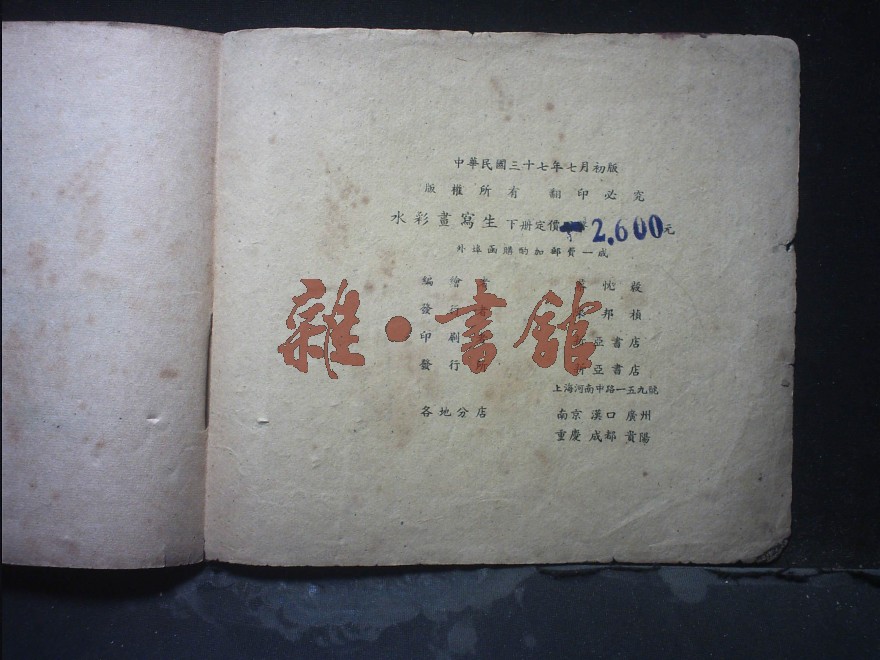 中華民國三十七年七月初版
版權所有 翻印必究
水彩畫寫生下册定價 2,600元
外埠函購酌加郵費一成
編繪 忱毅
發行 邦楨
印刷 亞書店
發行所 亞書店
上海河南中路一五九號
各地分店 南京 漢口 廣州
重慶 成都 貴陽
雜·書館